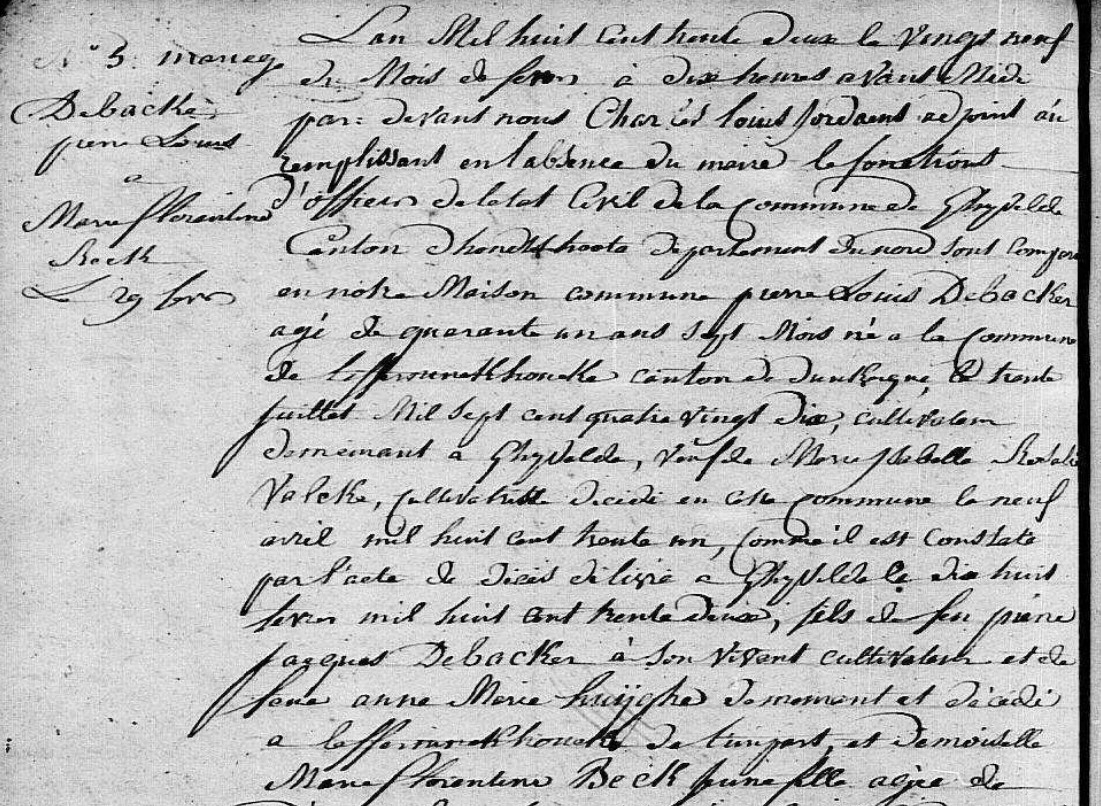 N° 3. mariage
Debacker
pierre Louis
a
Marie florentine
Beck
Le 29 fevr
L'an Mil huit cent trente deux le vingt neuf
du Mois de fevr à dix heures avant Midi
par: devant nous Charles louis Jordaens adjoint au
remplissant en l'absence du maire le fonctions
d'officier de l'etat Civil de la Commune de Ghyvelde
Canton d'hondschoote departement du nord sont Compar
en notre Maison commune pierre Louis Debacker
agé de quarante un ans sept Mois né a la Commune
de leffrinckhoucke canton de dunkerque, le trente
juillet Mil sept cent quatre vingt dix, cultivateur
demeurant a Ghyvelde, veuf de Marie Isabelle Rosalie
Valcke, Cultivatrice décédé en cette commune le neuf
avril mil huit cent trente un, Comme il est Constaté
par l'acte de décès délivré a Ghyvelde le dix huit
fevrier mil huit cent trente deux, fils de feu pierre
jacques Debacker à son vivant cultivateur et de
feue anne Marie huijghe demeurant et décédé
a leffrinckhoucke de tunpart, et Demoiselle
Marie florentine Beck jeune fille agée de